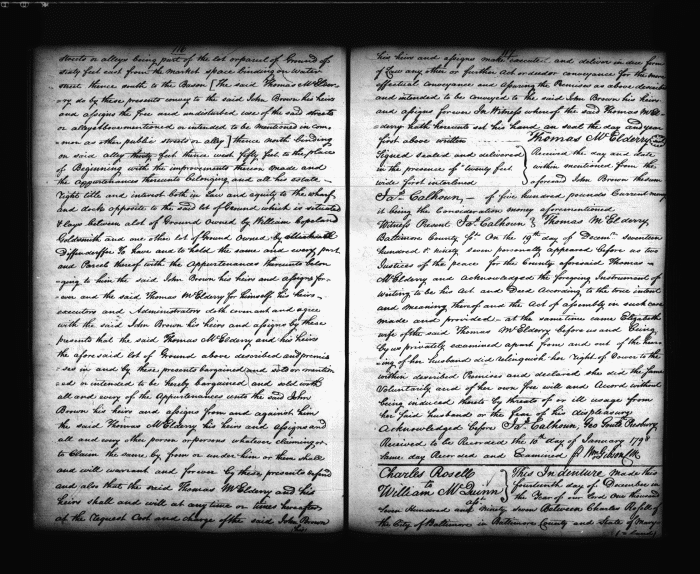 116
streets or alleys being part of the lot or parcel of Ground of
sixty feet east from the market space binding on water
street thence south to the Bason [The said Thomas McElder-
ry do by these presents convey to the said John Brown his heirs
and assigns the free and undisturbed use of the said streets
or alleys abovementioned or intended to be mentioned in com-
mon as other public streets or alley] thence north binding
on said alley thirty feet thence west fifty feet to the place
of Beginning with the improvements thereon made and
the Appurtenances thereunto belonging and all his estate
right title and interest both in Law and equity to the wharf
and dock opposite to the said lot of Ground which is situated
& lays between a lot of Ground owned by William Copeland
Goldsmith and one other lot of Ground owned by
Diffenderffer To have and to hold the same and every part
and Parcel thereof with the Appurtenances thereunto belon
-ging to him the said John Brown his heirs and assigns for-
ever and the said Thomas McElderry for himself his heirs
executors and Administrators doth covenant and agree
with the said John Brown his heirs and assigns by these
presents that the said Thomas McElderry and his heirs
the afore said lot of Ground above described and premi
-ses in and by these presents bargained and sold or mention
-ed or intended to be hereby bargained and sold with
all and every of the Appurtenances unto the said John
Brown his heirs and assigns from and against him
the said Thomas McElderry his heirs and assigns and
all and every other person or persons whatever claiming or
to Claim the same by from or under him or them shall
and will warrant and forever by these presents defend
and also that the said Thomas McElderry and his
heirs shall and will at any time or times hereafter
at the request Cost and charge of the said John Brown
his
117
his heirs and assigns make execute and deliver in due form
of Law any other or further Act or deed or conveyance for the more
effectual conveyance and assuring the Premises as above described
and intended to be conveyed to the said John Brown his heirs
and assigns forever In Witness whereof the said Thomas McEl-
derry hath hereunto set his hand and seal the day and year
first above written Thomas McElderry
Signed sealed and delivered
in the presence of twenty feet
wide first interlined
Received the day and date
within mentioned from the
aforesaid John Brown the sum
Jas. Calhoun, of five hundred pounds Current money
it being the Consideration money aforementioned
Witness Present Jas. Calhoun } Thomas McElderry
Baltimore County ss. On the 19th day of Decemr seventeen
hundred & ninty seven personally appeared before us two
Justices of the peace for the County aforesaid Thomas
McElderry and Acknowledged the foregoing Instrument of
writing to be his Act and Deed According to the true intent
and meaning thereof and the Act of assembly in such case
made and provided at the same time came Elizabeth
wife of the said Thomas McElderry before us and being
by us privately examined apart from and out of the hear
ing of her husband did relinquish her right of Dower to the
within described Premises and declared she did the same
Voluntarily and of her own free will and Accord without
being induced thereto by threats of or ill usage from
her said husband or the fear of his displeasure
Acknowledged before Jas. Calhoun Geo Goult Presbury
Received to be Recorded the 10th day of January 1798
Same day Recorded and Examined Wm Gibson Clk
Charles Rosell
to
William McQuinn
This Indenture made this
fourteenth day of December in
the Year of our Lord One thousand
Seven Hundred and Ninty seven Between Charles Rosell of
the City of Baltimore in Baltimore County and State of Mary